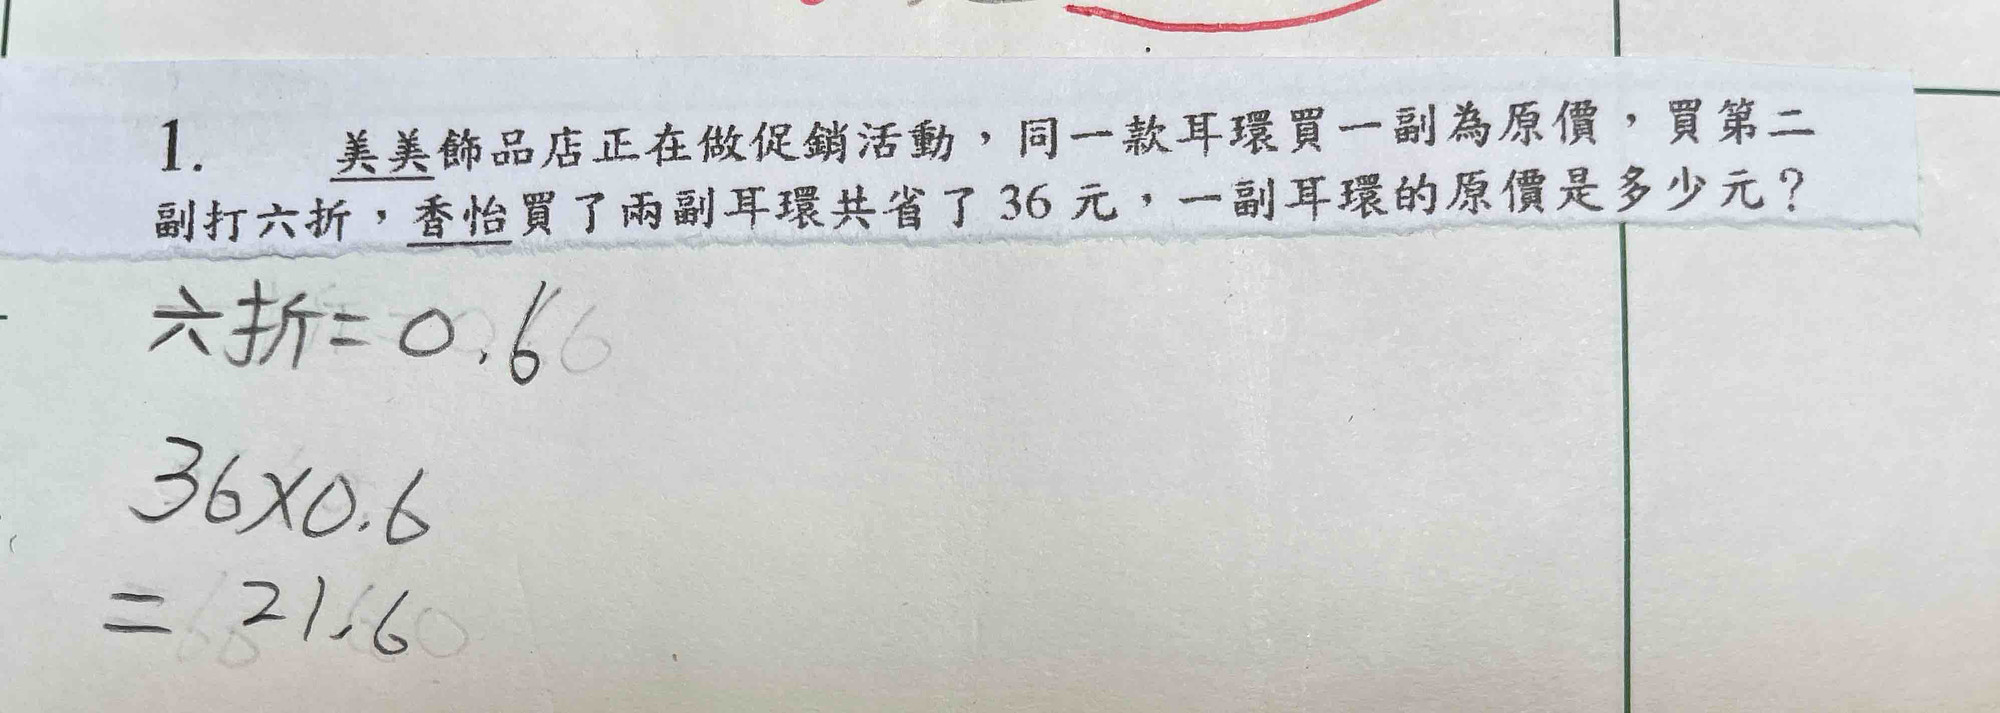 1. 美美飾品店正在做促銷活動，同一款耳環買一副為原價，買第二
副打六折，香怡買了兩副耳環共省了 36 元，一副耳環的原價是多少元？
六折=0.6
36×0.6
= 21.6